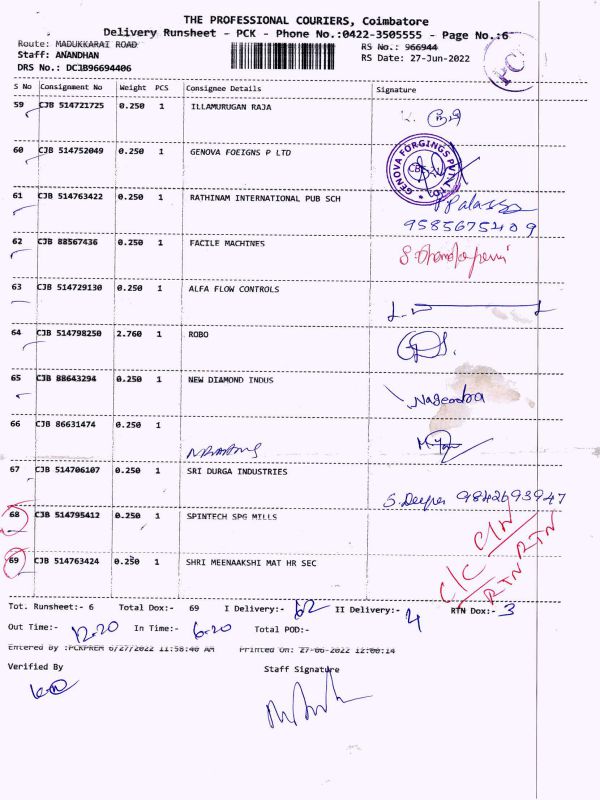 THE PROFESSIONAL COURIERS, Coimbatore
Delivery Runsheet - PCK - Phone No.:0422-3505555 - Page No.:6
Route: MADUKKARAI ROAD RS No.: 966944
Staff: ANANDHAN RS Date: 27-Jun-2022
DRS No.: DCJB96694406
PC
S No Consignment No Weight PCS Consignee Details Signature
59 CJB 514721725 0.250 1 ILLAMURUGAN RAJA
60 CJB 514752049 0.250 1 GENOVA FOEIGNS P LTD
GENOVA FORGINGS PVT. LTD. CBE-21
61 CJB 514763422 0.250 1 RATHINAM INTERNATIONAL PUB SCH
9585675409
62 CJB 88567436 0.250 1 FACILE MACHINES
63 CJB 514729130 0.250 1 ALFA FLOW CONTROLS
64 CJB 514798250 2.760 1 ROBO
65 CJB 88643294 0.250 1 NEW DIAMOND INDUS Nagendra
66 CJB 86631474 0.250 1
67 CJB 514706107 0.250 1 SRI DURGA INDUSTRIES
S. Deepa 9842693947
68 CJB 514795412 0.250 1 SPINTECH SPG MILLS C/N RTN
69 CJB 514763424 0.250 1 SHRI MEENAAKSHI MAT HR SEC C/C RTN
Tot. Runsheet:- 6 Total Dox:- 69 I Delivery:- 62 II Delivery:- 4 RTN Dox:- 3
Out Time:- 12.20 In Time:- 6.20 Total POD:-
Entered By :PCKPREM 6/27/2022 11:58:40 AM Printed On: 27-06-2022 12:00:14
Verified By Staff Signature